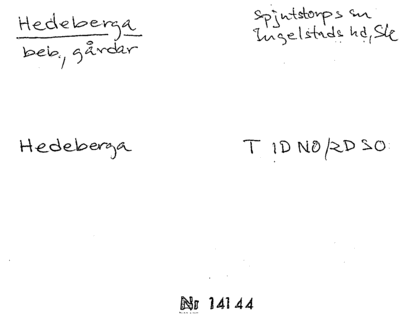 Hedeberga
beb., gårdar
Spjutstorps sn
Ingelstads hd, Sk
Hedeberga
T 1D NO/2D SO
Nr 14144